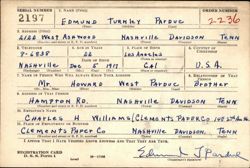 SERIAL NUMBER 1. NAME (Print) ORDER NUMBER
2197 EDMUND TURNLY PARDUE 2236
2. ADDRESS (Print)
WEST ASHWOOD NASHVILLE DAVIDSON TENN
3. TELEPHONE 4. AGE IN YEARS 5. PLACE OF BIRTH 6. COUNTRY OF CITIZENSHIP
22 LOS ANGELES
NASHVILLE DEC 5 1917 CAL U.S.A.
7. NAME OF PERSON WHO WILL ALWAYS KNOW YOUR ADDRESS 8. RELATIONSHIP OF THAT PERSON
MR. HOWARD WEST PARDUE BROTHER
9. ADDRESS OF THAT PERSON
HAMPTON RD NASHVILLE DAVIDSON TENN
10. EMPLOYER'S NAME
CHARLES H WILLIAMS (CLEMENTS PAPER CO
11. PLACE OF EMPLOYMENT OR BUSINESS
CLEMENTS PAPER CO NASHVILLE DAVIDSON TENN
I AFFIRM THAT I HAVE VERIFIED ABOVE ANSWERS AND THAT THEY ARE TRUE.
REGISTRATION CARD
D. S. S. FORM 1
Edmund T. Pardue